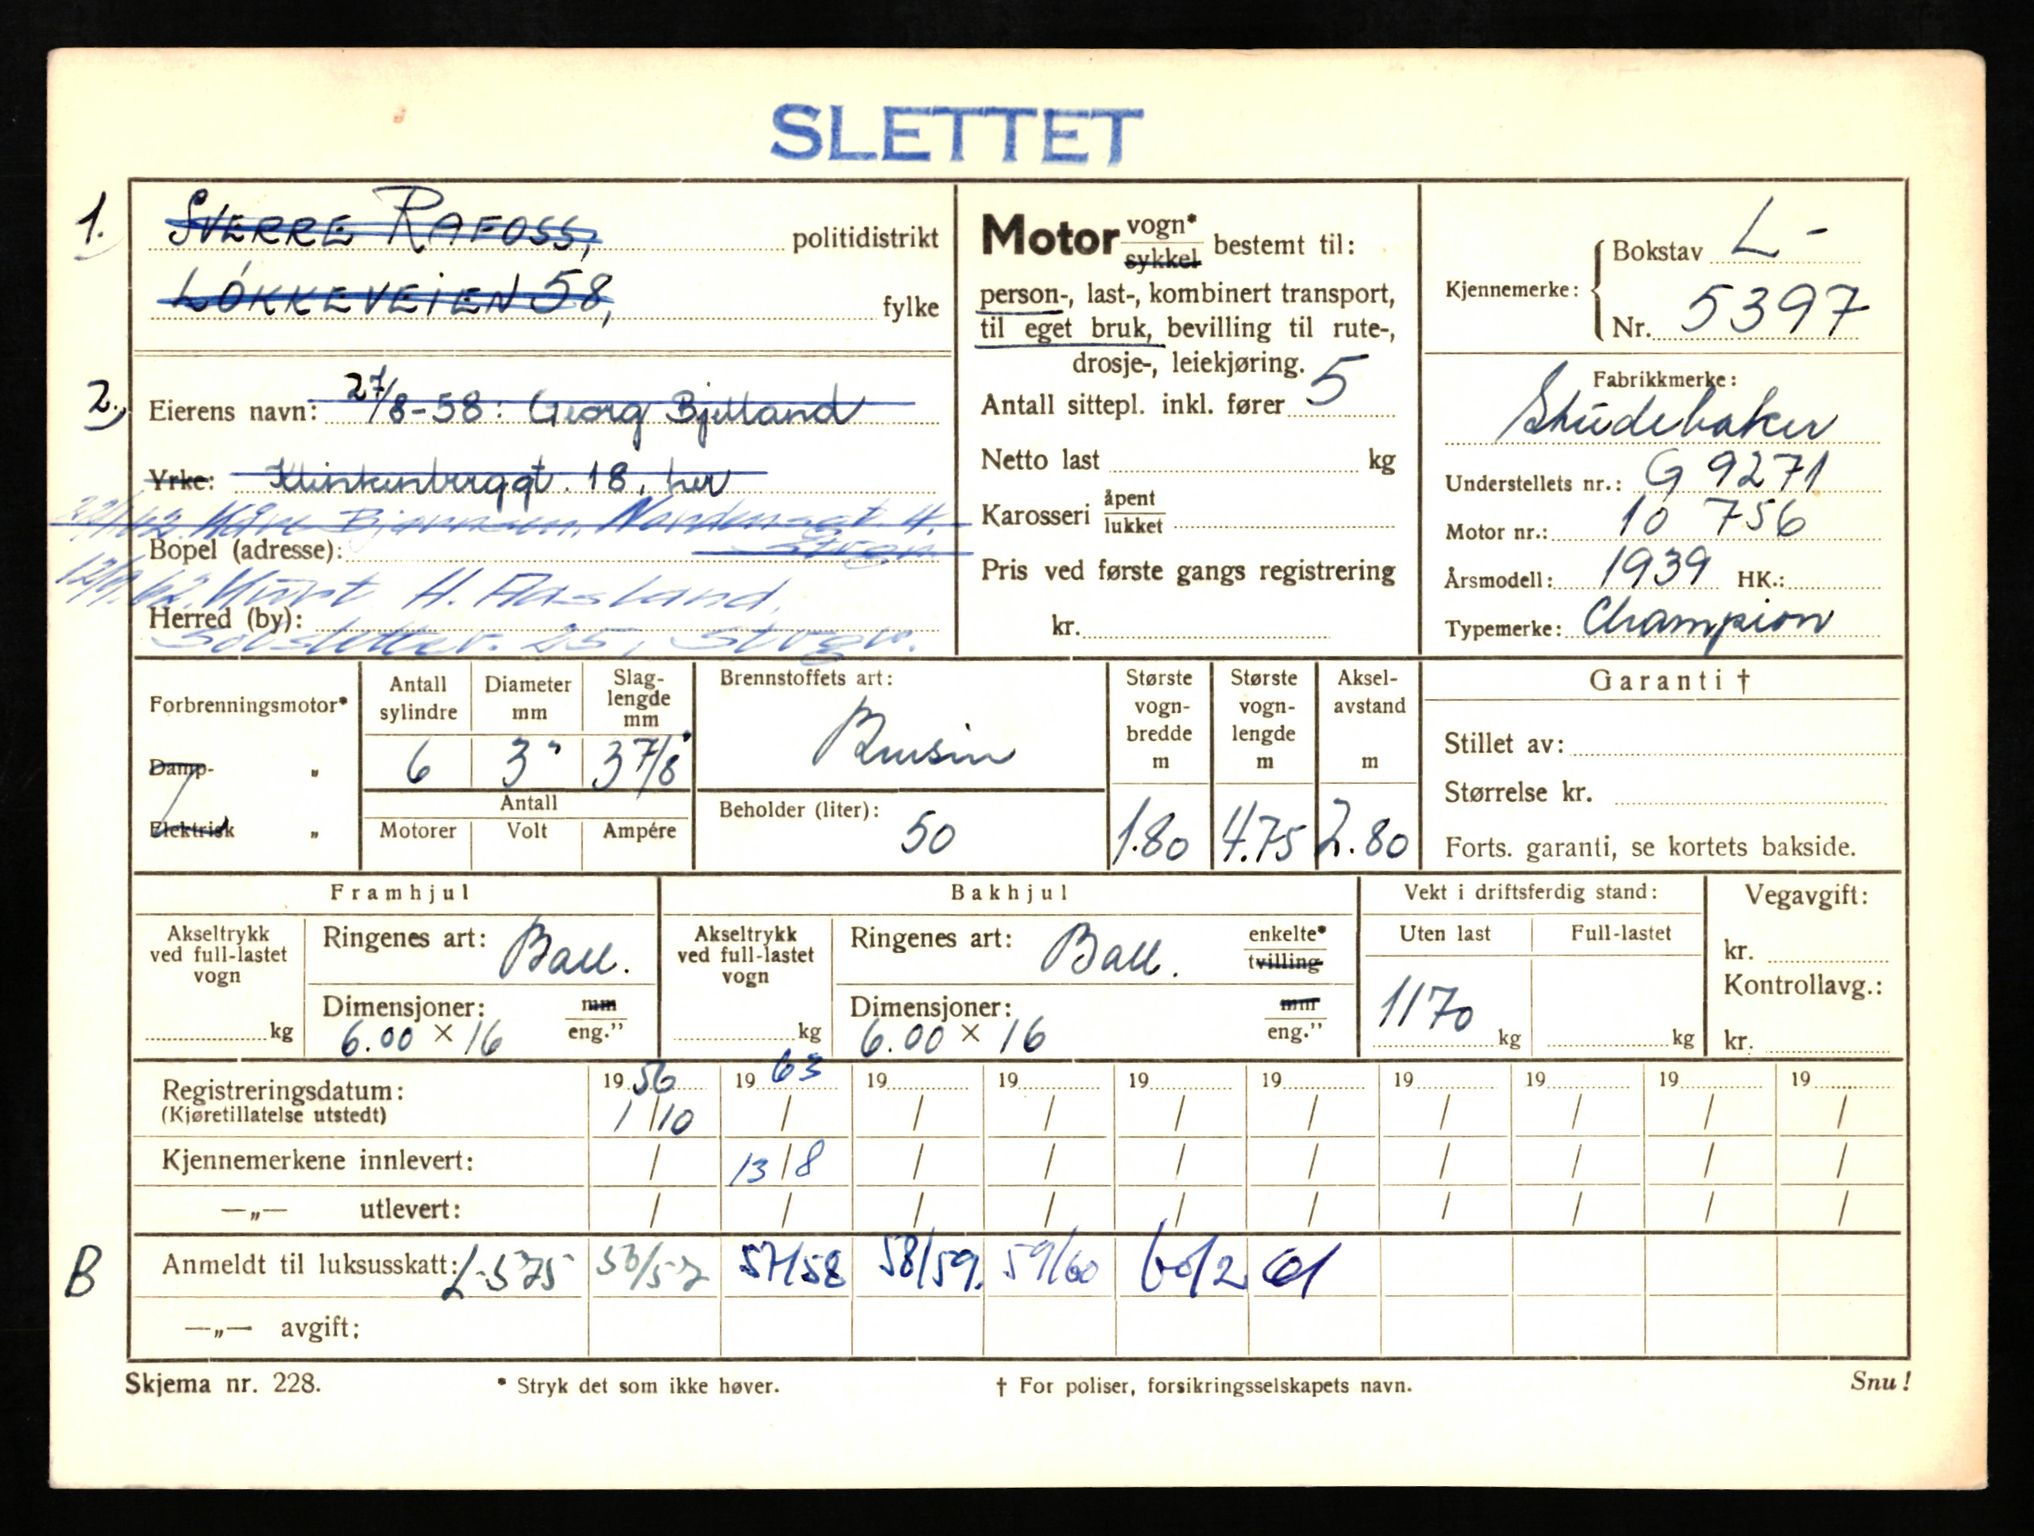 SLETTET
1. SVERRE RAFOSS, politidistrikt
LØKKEVEIEN 58, fylke
2. Eierens navn: 27/8-58: Georg Bjelland
Yrke: Klinkenberggt. 18, her
Bopel (adresse):
12/9.62. Kurt H. Aasland.
Herred (by):
Solsletten. 25, Stvgr.
Motor vogn* sykkel bestemt til:
person-, last-, kombinert transport,
til eget bruk, bevilling til rute-,
drosje-, leiekjøring.
Antall sittepl. inkl. fører 5
Netto last kg
Karosseri åpent lukket
Pris ved første gangs registrering
kr.
Kjennemerke: Bokstav L-
Nr. 5397
Fabrikkmerke:
Studebaker
Understellets nr.: G 9271
Motor nr.: 10 756
Årsmodell: 1939 HK.:
Typemerke: Champion
Forbrenningsmotor*
Damp- „
Elektrisk „
Antall sylindre
6
Diameter mm
3"
Slag-lengde mm
3 7/8"
Antall
Motorer Volt Ampére
Brennstoffets art:
Bensin
Beholder (liter):
50
Største vogn-bredde m
1.80
Største vogn-lengde m
4.75
Aksel-avstand m
2.80
Garanti †
Stillet av:
Størrelse kr.
Forts. garanti, se kortets bakside.
Framhjul
Akseltrykk ved full-lastet vogn
kg
Ringenes art: Ball.
Dimensjoner: mm eng.”
6.00 × 16
Bakhjul
Akseltrykk ved full-lastet vogn
kg
Ringenes art: Ball. enkelte* tvilling
Dimensjoner: mm eng.”
6.00 × 16
Vekt i driftsferdig stand:
Uten last Full-lastet
1170 kg kg
Vegavgift:
kr.
Kontrollavg.:
kr.
Registreringsdatum: 1956 1963 19 19 19 19 19 19 19 19
(Kjøretillatelse utstedt) 1/10 / / / / / / / / /
Kjennemerkene innlevert: / 13/8 / / / / / / / /
—„— utlevert: / / / / / / / / / /
B Anmeldt til luksusskatt: L-575 56/57 57/58 58/59. 59/60 60/2 61
—„— avgift:
Skjema nr. 228. * Stryk det som ikke høver. † For poliser, forsikringsselskapets navn. Snu!